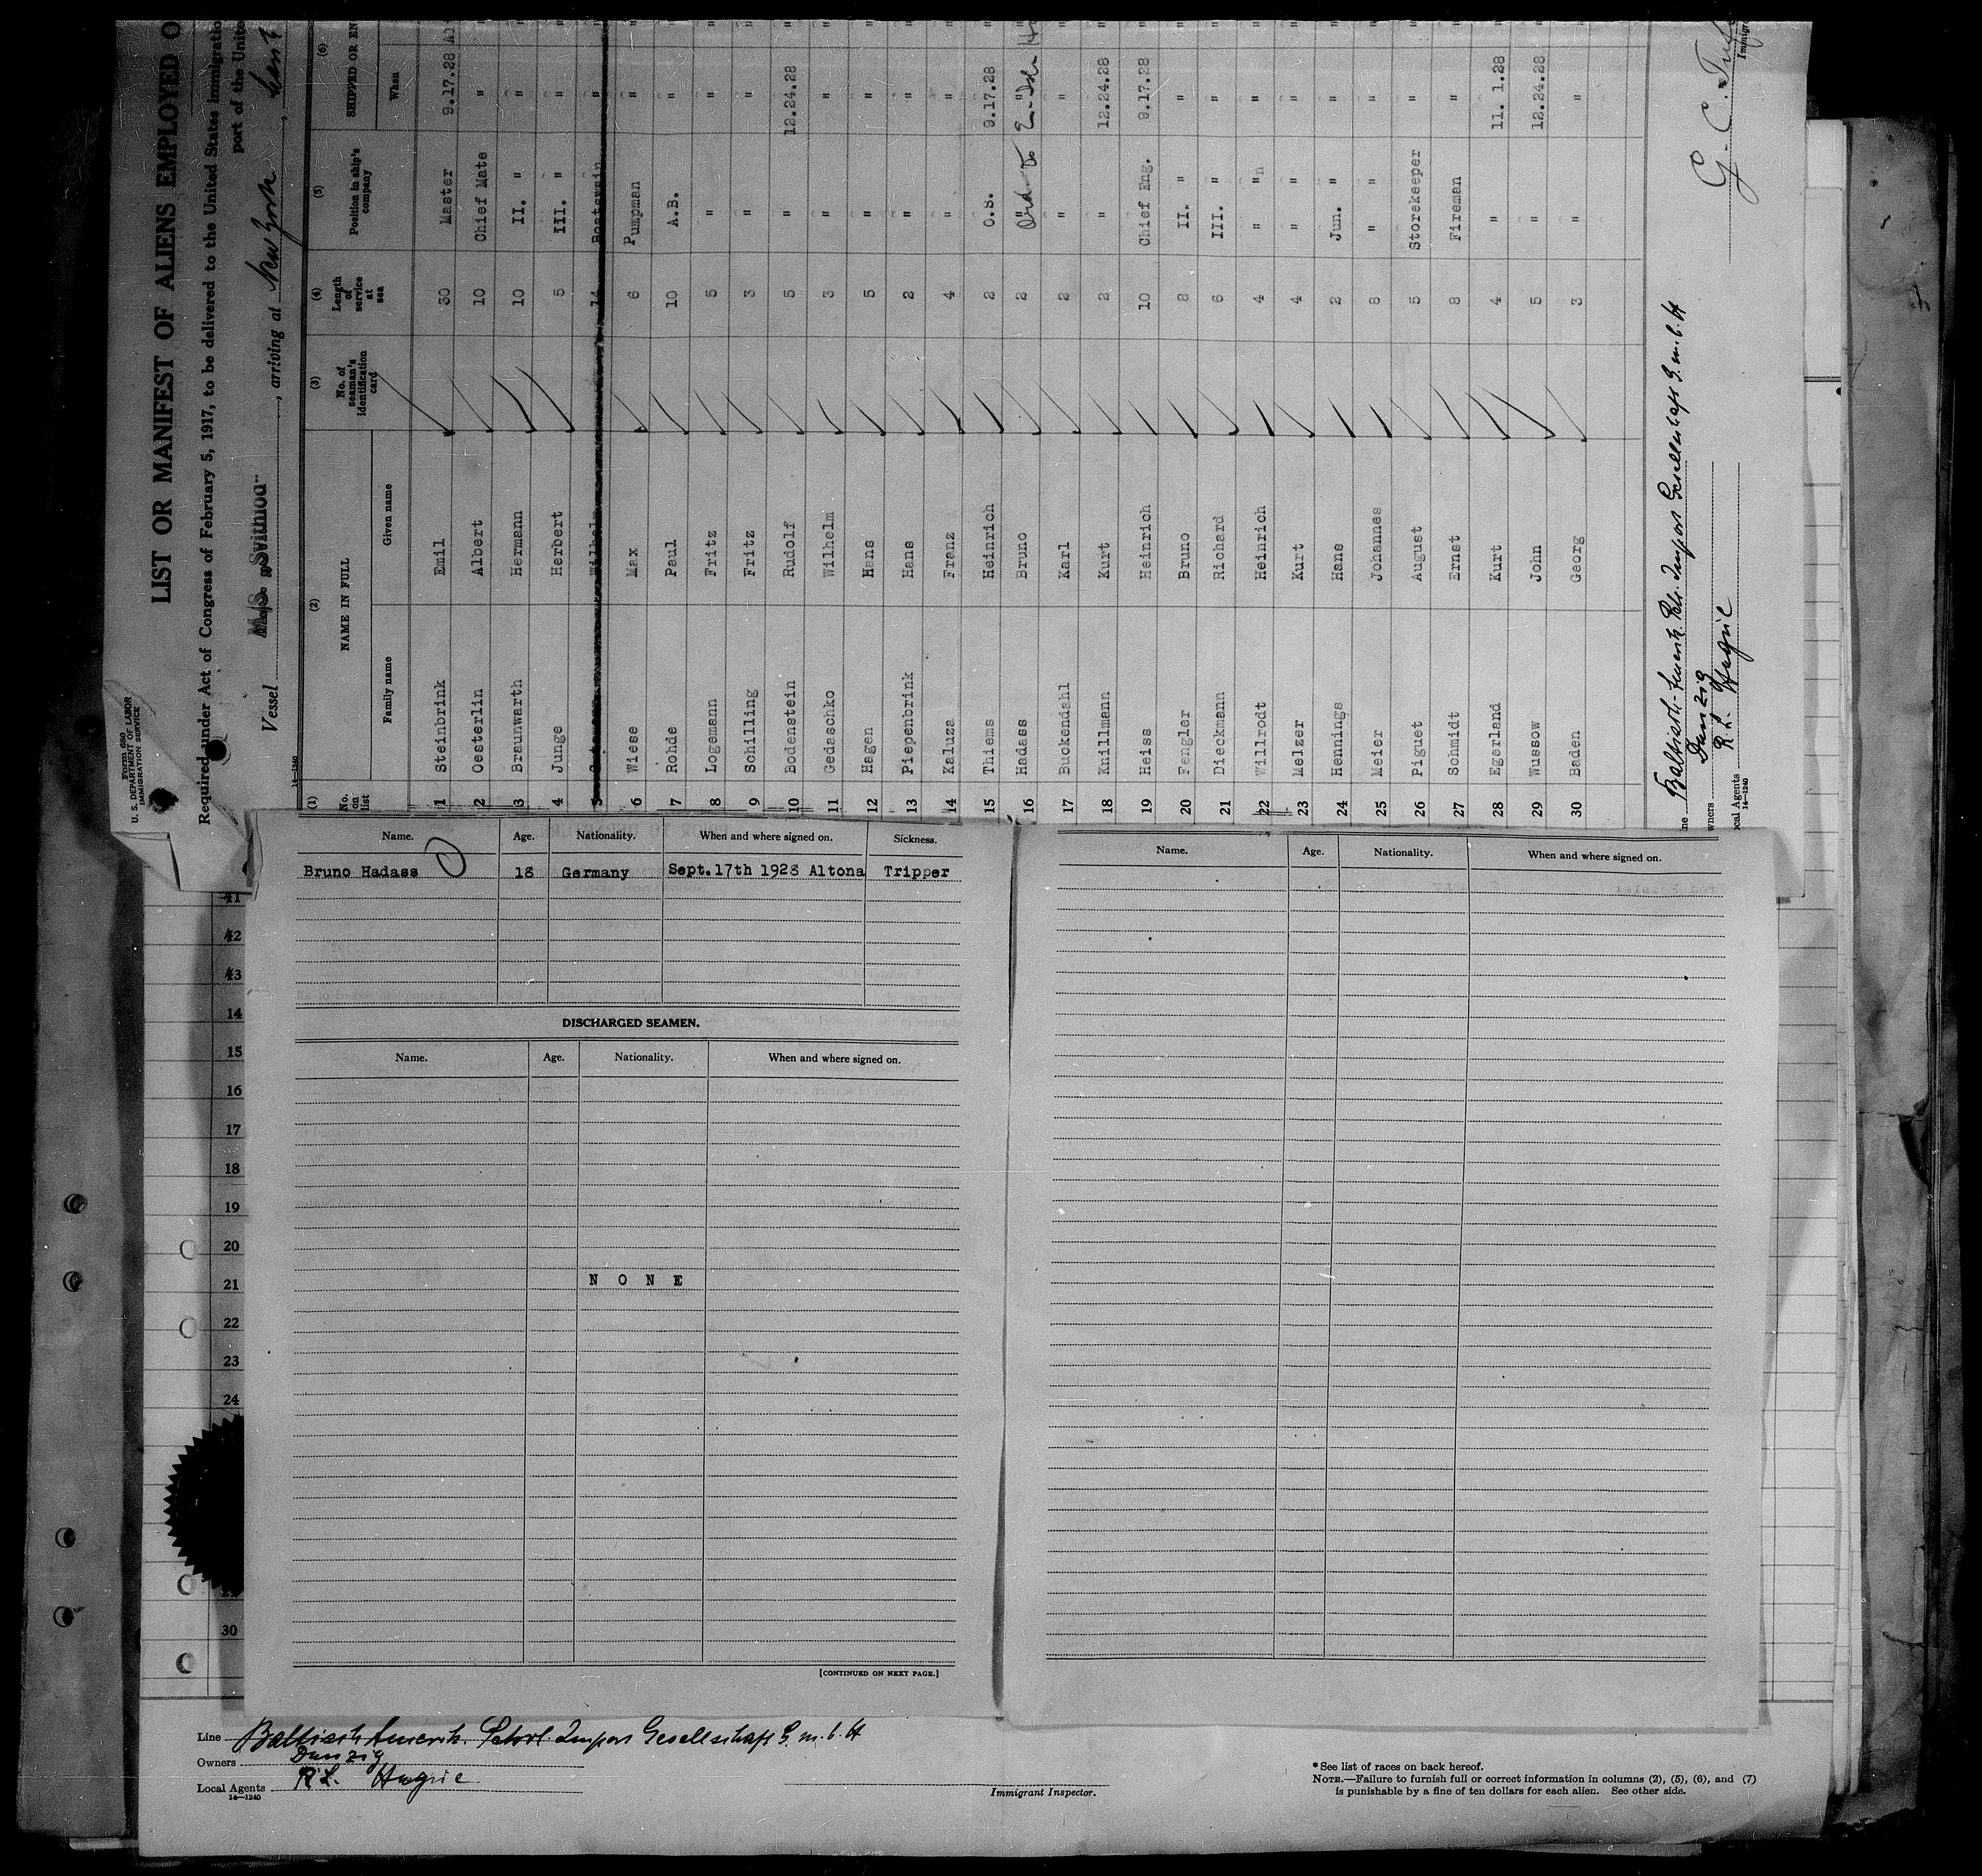 Form 680
U. S. DEPARTMENT OF LABOR
IMMIGRATION SERVICE
LIST OR MANIFEST OF ALIENS EMPLOYED O
Required under Act of Congress of February 5, 1917, to be delivered to the United States immigratio
port of the Unite
Vessel M/S "Svithiod" , arriving at New York ,
14—1240
(1) (2) (3) (4) (5) (6)
No. on list NAME IN FULL No. of seaman's identification card Length of service at sea Position in ship's company SHIPPED OR EN
Family name Given name When
1 Steinbrink Emil 30 Master 9.17.28
2 Oesterlin Albert 10 Chief Mate "
3 Braunwarth Hermann 10 II. " "
4 Junge Herbert 5 III. " "
5 Wilhelm 14 Boatswain "
6 Wiese Max 6 Pumpman "
7 Rohde Paul 10 A.B. "
8 Logemann Fritz 5 " "
9 Schilling Fritz 3 " "
10 Bodenstein Rudolf 5 " 12.24.28
11 Gedaschko Wilhelm 3 " "
12 Hagen Hans 5 " "
13 Piepenbrink Hans 2 " "
14 Kaluza Franz 4 " "
15 Thiems Heinrich 2 O.S. 9.17.28
16 Hadass Bruno 2 " "
17 Buckendahl Karl 2 " "
18 Knillmann Kurt 2 " 12.24.28
19 Heiss Heinrich 10 Chief Eng. 9.17.28
20 Fengler Bruno 8 II. " "
21 Dieckmann Richard 6 III. " "
22 Willrodt Heinrich 4 " " "
23 Melzer Kurt 4 " " "
24 Hennings Hans 2 Jun. " "
25 Meier Johannes 8 " " "
26 Piguet August 5 Storekeeper "
27 Schmidt Ernst 8 Fireman "
28 Egerland Kurt 4 " 11. 1.28
29 Wussow John 5 " 12.24.28
30 Baden Georg 3 " "
ne Baltisch-Amerik. Petr. Import Gesellschaft G.m.b.H
wners Danzig
ocal Agents R. L.
14—1240
Immigr
Name. Age. Nationality. When and where signed on. Sickness.
Bruno Hadass 18 Germany Sept.17th 1928 Altona Tripper
DISCHARGED SEAMEN.
Name. Age. Nationality. When and where signed on.
N O N E
[CONTINUED ON NEXT PAGE.]
Name. Age. Nationality. When and where signed on.
41
42
43
14
15
16
17
18
19
20
21
22
23
24
30
Line Baltisch Amerik. Petrol. Import Gesellschaft G.m.b.H
Owners Danzig
Local Agents R. L.
14—1240
Immigrant Inspector.
* See list of races on back hereof.
NOTE.—Failure to furnish full or correct information in columns (2), (5), (6), and (7)
is punishable by a fine of ten dollars for each alien. See other side.